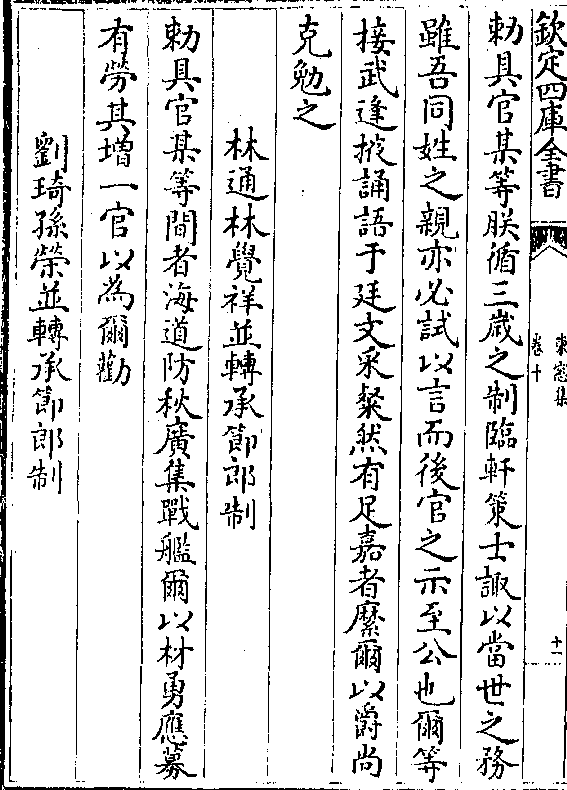 欽定四庫全書
東窓集
卷十
十一
勅具官某等朕循三歲之制臨軒策士諏以當世之務
雖吾同姓之親亦必試以言而後官之示至公也爾等
接武逢掖誦語于廷文采粲然有足嘉者縻爾以爵尚
克勉之
林通林覺祥並轉承節郎制
勅具官某等間者海道防秋廣集戰艦爾以材勇應募
有勞其增一官以為爾勸
劉琦孫榮並轉承節郎制